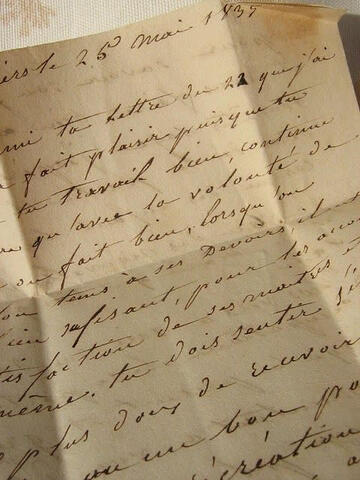 iers le 25 Mai 1837
mi ta lettre du 22 que j'ai
fait plaisir puisque tu
tu travail bien, continue
re qu'avec la volonté de
on fait bien, lorsqu'on
son tems à ses Devoirs, il
bien suffisant, pour les
tisfaction de ses maîtres
même. tu dois sentir
plus doux de recevoir
ou un bon
récréation